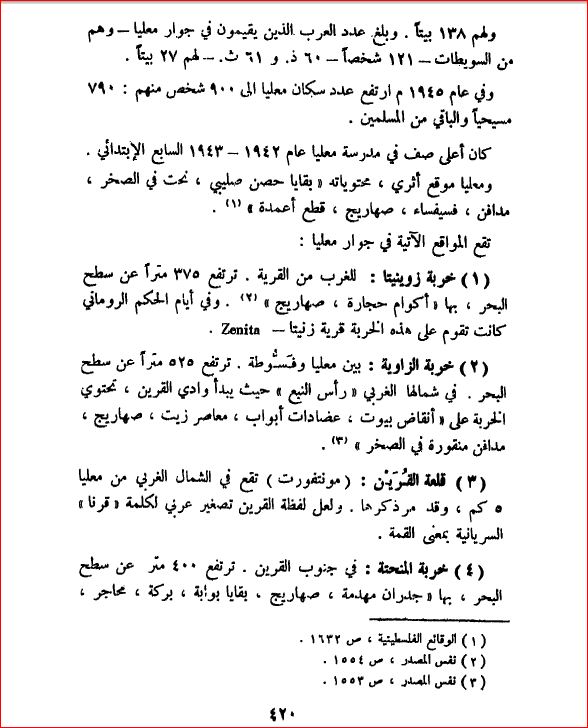 ولهم ١٣٨ بيتاً . وبلغ عدد العرب الذين يقيمون في جوار معليا – وهم
من السويطات – ١٢١ شخصاً – ٦٠ ذ. و ٦١ ث. – لهم ٢٧ بيتاً .
وفي عام ١٩٤٥ م ارتفع عدد سكان معليا الى ٩٠٠ شخص منهم : ٧٩٠
مسيحياً والباقي من المسلمين .
كان أعلى صف في مدرسة معليا عام ١٩٤٢ – ١٩٤٣ السابع الإبتدائي .
ومعليا موقع أثري ، محتوياته « بقايا حصن صليبي ، نحت في الصخر ،
مدافن ، فسيفساء ، صهاريج ، قطع أعمدة » (١) .
تقع المواقع الآتية في جوار معليا :
(١) خربة زوينيتا : للغرب من القرية . ترتفع ٣٧٥ متراً عن سطح
البحر ، بها « أكوام حجارة ، صهاريج » (٢) . وفي أيام الحكم الروماني
كانت تقوم على هذه الخربة قرية زنيتا – Zenita .
(٢) خربة الزاوية : بين معليا وفَسُّوطة . ترتفع ٥٢٥ متراً عن سطح
البحر . في شمالها الغربي « رأس النبع » حيث يبدأ وادي القرين ، تحتوي
الخربة على « أنقاض بيوت ، عضادات أبواب ، معاصر زيت ، صهاريج ،
مدافن منقورة في الصخر » (٣) .
(٣) قلعة القُرَيْن : ( مونتفورت ) تقع في الشمال الغربي من معليا
٥ كم ، وقد مر ذكرها . ولعل لفظة القرين تصغير عربي لكلمة « قرنا »
السريانية بمعنى القمة .
(٤) خربة المنحتة : في جنوب القرين . ترتفع ٤٠٠ متر عن سطح
البحر ، بها « جدران مهدمة ، صهاريج ، بقايا بوابة ، بركة ، محاجر ،
(١) الوقائع الفلسطينية ، ص ١٦٣٢ .
(٢) نفس المصدر ، ص ١٥٥٤ .
(٣) نفس المصدر ، ص ١٥٥٣ .
٤٢٠